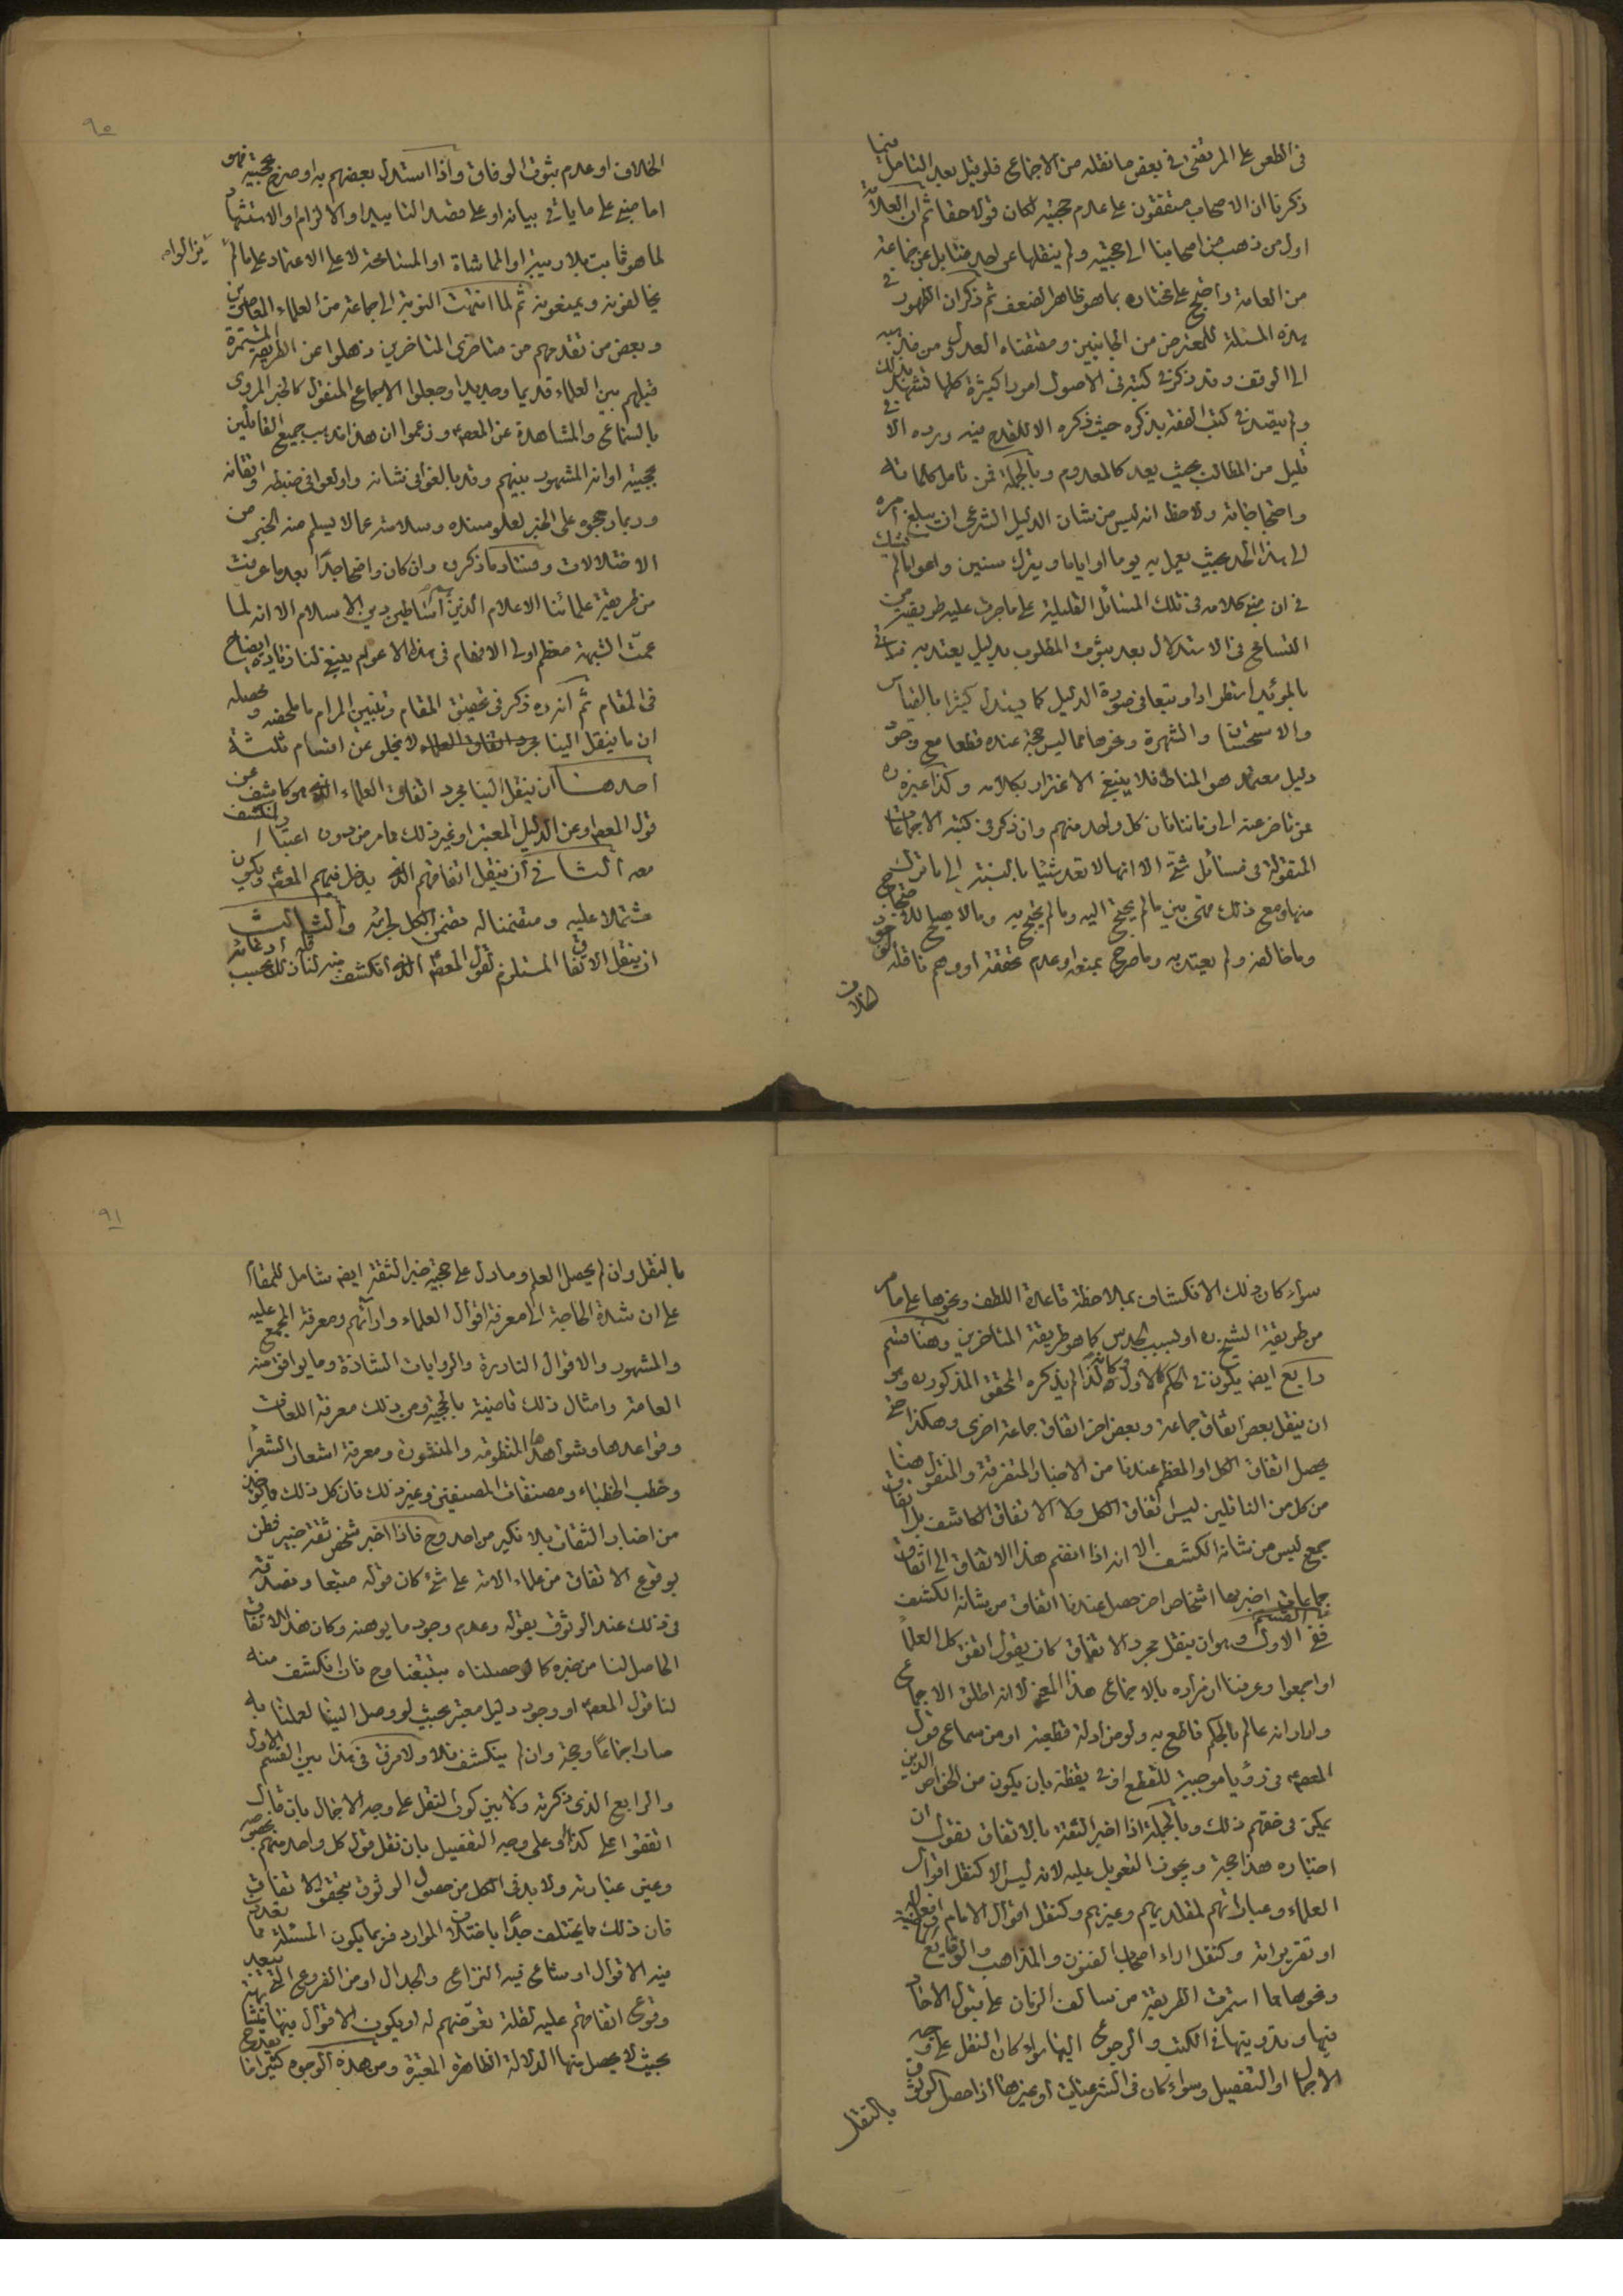 في الطعن على المرتضى في بعض ما نقله من الاجماع فلو قيل بعد التأمل فيما
ذكرنا ان الاصحاب متفقون على عدم حجيته لكان قولا حقا ثم ان العلامة
اول من ذهب من اصحابنا الى حجيته ولم ينقلها عن احد منا بل عن جماعة
من العامة واحتج على مختاره بما هو ظاهر الضعف ثم ذكر ان الظهور في
هذه المسئلة للمعترض من الجانبين ومقتضاه العدول من مذهبه
الى الوقف وقد ذكر في كتبه في الاصول امورا كثيرة كلها تشهد بذلك
ولم يتصد في كتب الفقه بذكره حيث ذكره الا للقدح فيه ورده الا في
قليل من المطالب بحيث يعد كالمعدوم وبالجملة فمن تامل كلماته
واحتجاجاته ولاحظ انه ليس من شان الدليل الشرعي ان يبلغ امره
الى هذا الحد بحيث يعمل به يوما او اياما ويترك سنين واعواما لم يشك
في ان مبنى كلامه في تلك المسائل القليلة على ما جرت عليه طريقته من
التسامح في الاستدلال بعد ثبوت المطلوب بدليل يعتد به فياتي
بالمؤيد استطرادا وتبعا في صورة الدليل كما يستدل كثيرا بالقياس
والاستحسان والشهرة ونحوها مما ليس حجة عنده قطعا مع وجود
دليل معتمد هو المناط فلا ينبغي الاغترار بكلامه وكذا غيره
ممن تاخر عنه الى زماننا فان كل واحد منهم وان ذكر في كتبه الاجماعات
المنقولة في مسائل شتى الا انها لا تعد شيئا بالنسبة الى ما ترك
منها ومع ذلك فهي بين ما لم يحتج اليه وما لم يحتج به وما لا يصلح للاحتجاج
وما خالفه ولم يعتد به وما صرح بمنعه او عدم تحققه او وهم ناقله لوجود
الخلاف
٩٠
الخلاف او عدم ثبوت الوفاق واذا استدل بعضهم به او صرح بحجيته فهو
اما مبني على ما ياتي بيانه او على قصد التاييد او الالزام او الاستشهاد
لما هو ثابت بلا ريب او المماشاة او المسامحة لا على الاعتماد على ما لم
يخالفونه ويمنعونه ثم لما انتهت النوبة الى جماعة من العلماء المعاصرين
وبعض من تقدمهم من متاخري المتاخرين ذهلوا عن الطريقة المستمرة
قبلهم بين العلماء قديما وحديثا وجعلوا الاجماع المنقول كالخبر المروي
بالسماع والمشاهدة عن المعصوم وزعموا ان هذا مذهب جميع القائلين
بحجيته او انه المشهور بينهم وقد بالغوا في شانه واولعوا في ضبطه واتقانه
وربما رجحوه على الخبر لعلو سنده وسلامته عما لا يسلم منه الخبر من
الاختلالات وفساد ما ذكروه وان كان واضحا جدا بعد ما عرفت
من طريقة علمائنا الاعلام الذين هم اساطين دين الاسلام الا انه لما
عمت الشبهة معظم اولي الافهام في هذه الاعوام ينبغي لنا زيادة ايضاح
في المقام ثم انه ره ذكر في تحقيق المقام وتبيين المرام ما ملخصه ومحصله
ان ما ينقل الينا مجرد اتفاق العلماء لا يخلو عن اقسام ثلثة
احدها ان ينقل الينا مجرد اتفاق العلماء الذي هو كاشف عن
قول المعصوم او عن الدليل المعتبر او غير ذلك مما مر من دون اعتبار المنكشف
معه الثاني ان ينقل اتفاقهم الذي يدخل فيهم المعصوم ويكون
مشتملا عليه ومتضمنا له تضمن الكل لجزئه والثالث
ان ينقل الاتفاق المستلزم لقول المعصوم الذي انكشف منه لناقله بحسب ادعائه
سواء كان ذلك الانكشاف بملاحظة قاعدة اللطف ونحوها على ما مر
من طريقة الشيخ ره او بسبب الحدس كما هو طريقة المتاخرين وهنا قسم
رابع ايضا يكون في الحكم كالاول وكانه لذا لم يذكره المحقق المذكور ره وهو
ان ينقل بعض اتفاق جماعة وبعض اخر اتفاق جماعة اخرى وهكذا حتى
يحصل اتفاق الكل او المعظم عندنا من الاخبار المتفرقة والمنقول هنا
من كل من الناقلين ليس اتفاق الكل ولا الاتفاق الكاشف بل اتفاق
جمع ليس من شانه الكشف الا انه اذا انضم هذا الاتفاق الى اتفاق
جماعات اخبر بها اشخاص اخر حصل عندنا اتفاق من شانه الكشف
ففي القسم الاول وهو ان ينقل مجرد الاتفاق كان يقول اتفق كل العلماء
او اجمعوا وعرفنا ان مراده بالاجماع هذا المعنى لا انه اطلق الاجماع
واراد انه عالم بالحكم قاطع به ولو من ادلة قطعية او من سماع قول
المعصوم في رؤيا موجبة للقطع او في يقظة بان يكون من الخواص الذين
يمكن في حقهم ذلك وبالجملة اذا اخبر الثقة بالاتفاق نقول ان
اخباره هذا حجة ويجوز التعويل عليه لانه ليس الا كنقل اقوال
العلماء وعباراتهم لمقلديهم وغيرهم وكنقل اقوال الامام وافعاله
او تقريراته وكنقل اراء اصحاب الفنون والمذاهب والوقايع
ونحوها مما استمرت الطريقة من سالف الزمان على قبول الاحاد
فيها وتدوينها في الكتب والرجوع اليها سواء كان النقل على وجه
الاجمال او التفصيل وسواء كان في الشرعيات او غيرها اذا حصل الوثوق
بالنقل
٩١
بالنقل وان لم يحصل العلم وما دل على حجية خبر الثقة ايضا شامل للمقام
على ان شدة الحاجة الى معرفة اقوال العلماء وارائهم ومعرفة المجمع عليه
والمشهور والاقوال النادرة والروايات الشاذة وما يوافق منه
العامة وامثال ذلك قاضية بالحجية ومن ذلك معرفة اللغات
وقواعدها وشواهدها المنظومة والمنثورة ومعرفة اشعار الشعراء
وخطب الخطباء ومصنفات المصنفين وغير ذلك فان كل ذلك ماخوذ
من اخبار الثقات بلا نكير من احد وح فاذا اخبر شخص ثقة خبير فطن
بوقوع الاتفاق من علماء الامة على شئ كان قوله متبعا ونصدقه
في ذلك عند الوثوق بقوله وعدم وجود ما يوهنه وكان هذا الاتفاق
الحاصل لنا من خبره كما لو حصلناه بتتبعنا وح فان انكشف منه
لنا قول المعصوم او وجود دليل معتبر بحيث لو وصل الينا لعملنا به
صار اجماعا وحجة وان لم ينكشف فلا ولا فرق في هذا بين القسم الاول
والرابع الذي ذكرته ولا بين كون النقل على وجه الاجمال بان قال
اتفقوا على كذا او على وجه التفصيل بان نقل قول كل واحد منهم بخصوصه
وعين عبارته ولا بد في الكل من حصول الوثوق بتحقق الاتفاق
فان ذلك مما يختلف جدا باختلاف الموارد فربما يكون المسئلة مما تعددت
فيه الاقوال او شاع فيه النزاع والجدال او من الفروع الخفية يبعد
وقوع اتفاقهم عليه لقلة تعرضهم له او يكون الاقوال فيها
بحيث لا يحصل منها الدلالة الظاهرة المعتبرة ومن هذه الوجوه كثيرا ما